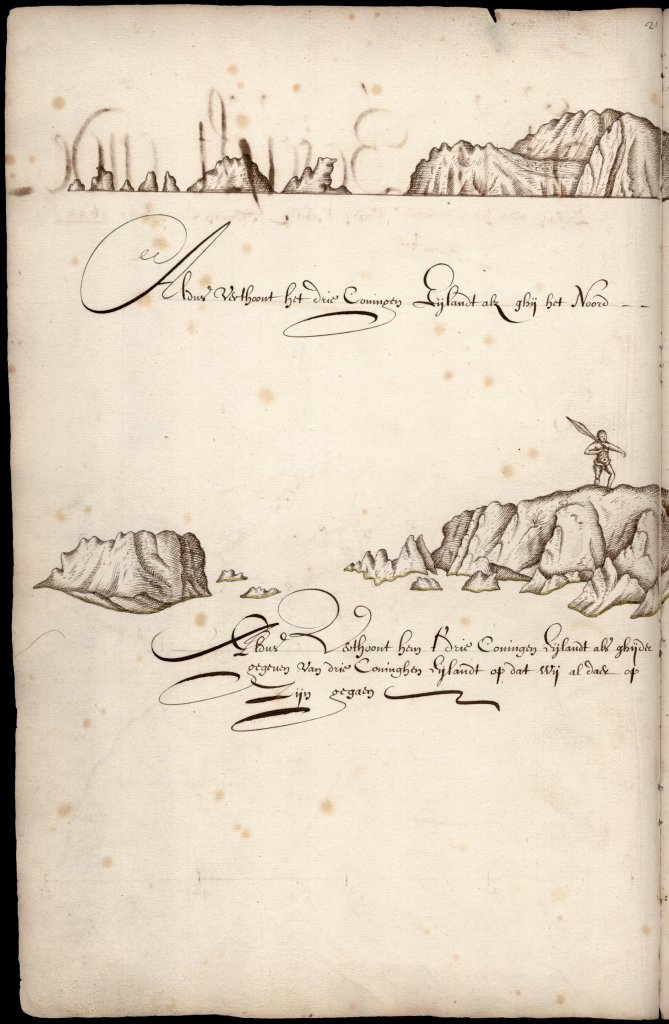 21
Aldus Verthoont het drie Coningen Eijlandt als ghij het Noord - -
Aldus Verthoont hem t' drie Coningen Eijlandt als ghijder
gegeven Van drie Coninghen Eijlandt op dat wij al daer op
Zijn gegaen